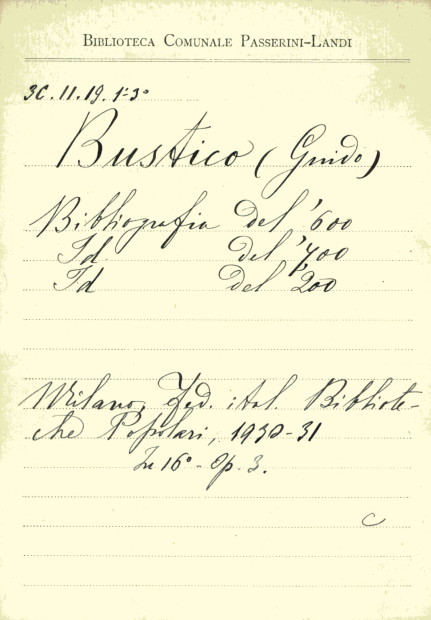 BIBLIOTECA COMUNALE PASSERINI-LANDI
3C.11.19.1-3°
Bustico (Guido)
Bibliografia del '600
Id. del '700
Id del '200
Milano, Fed. ital. Bibliote-
che Popolari, 1930-31
In 16° - Op. 3.
C